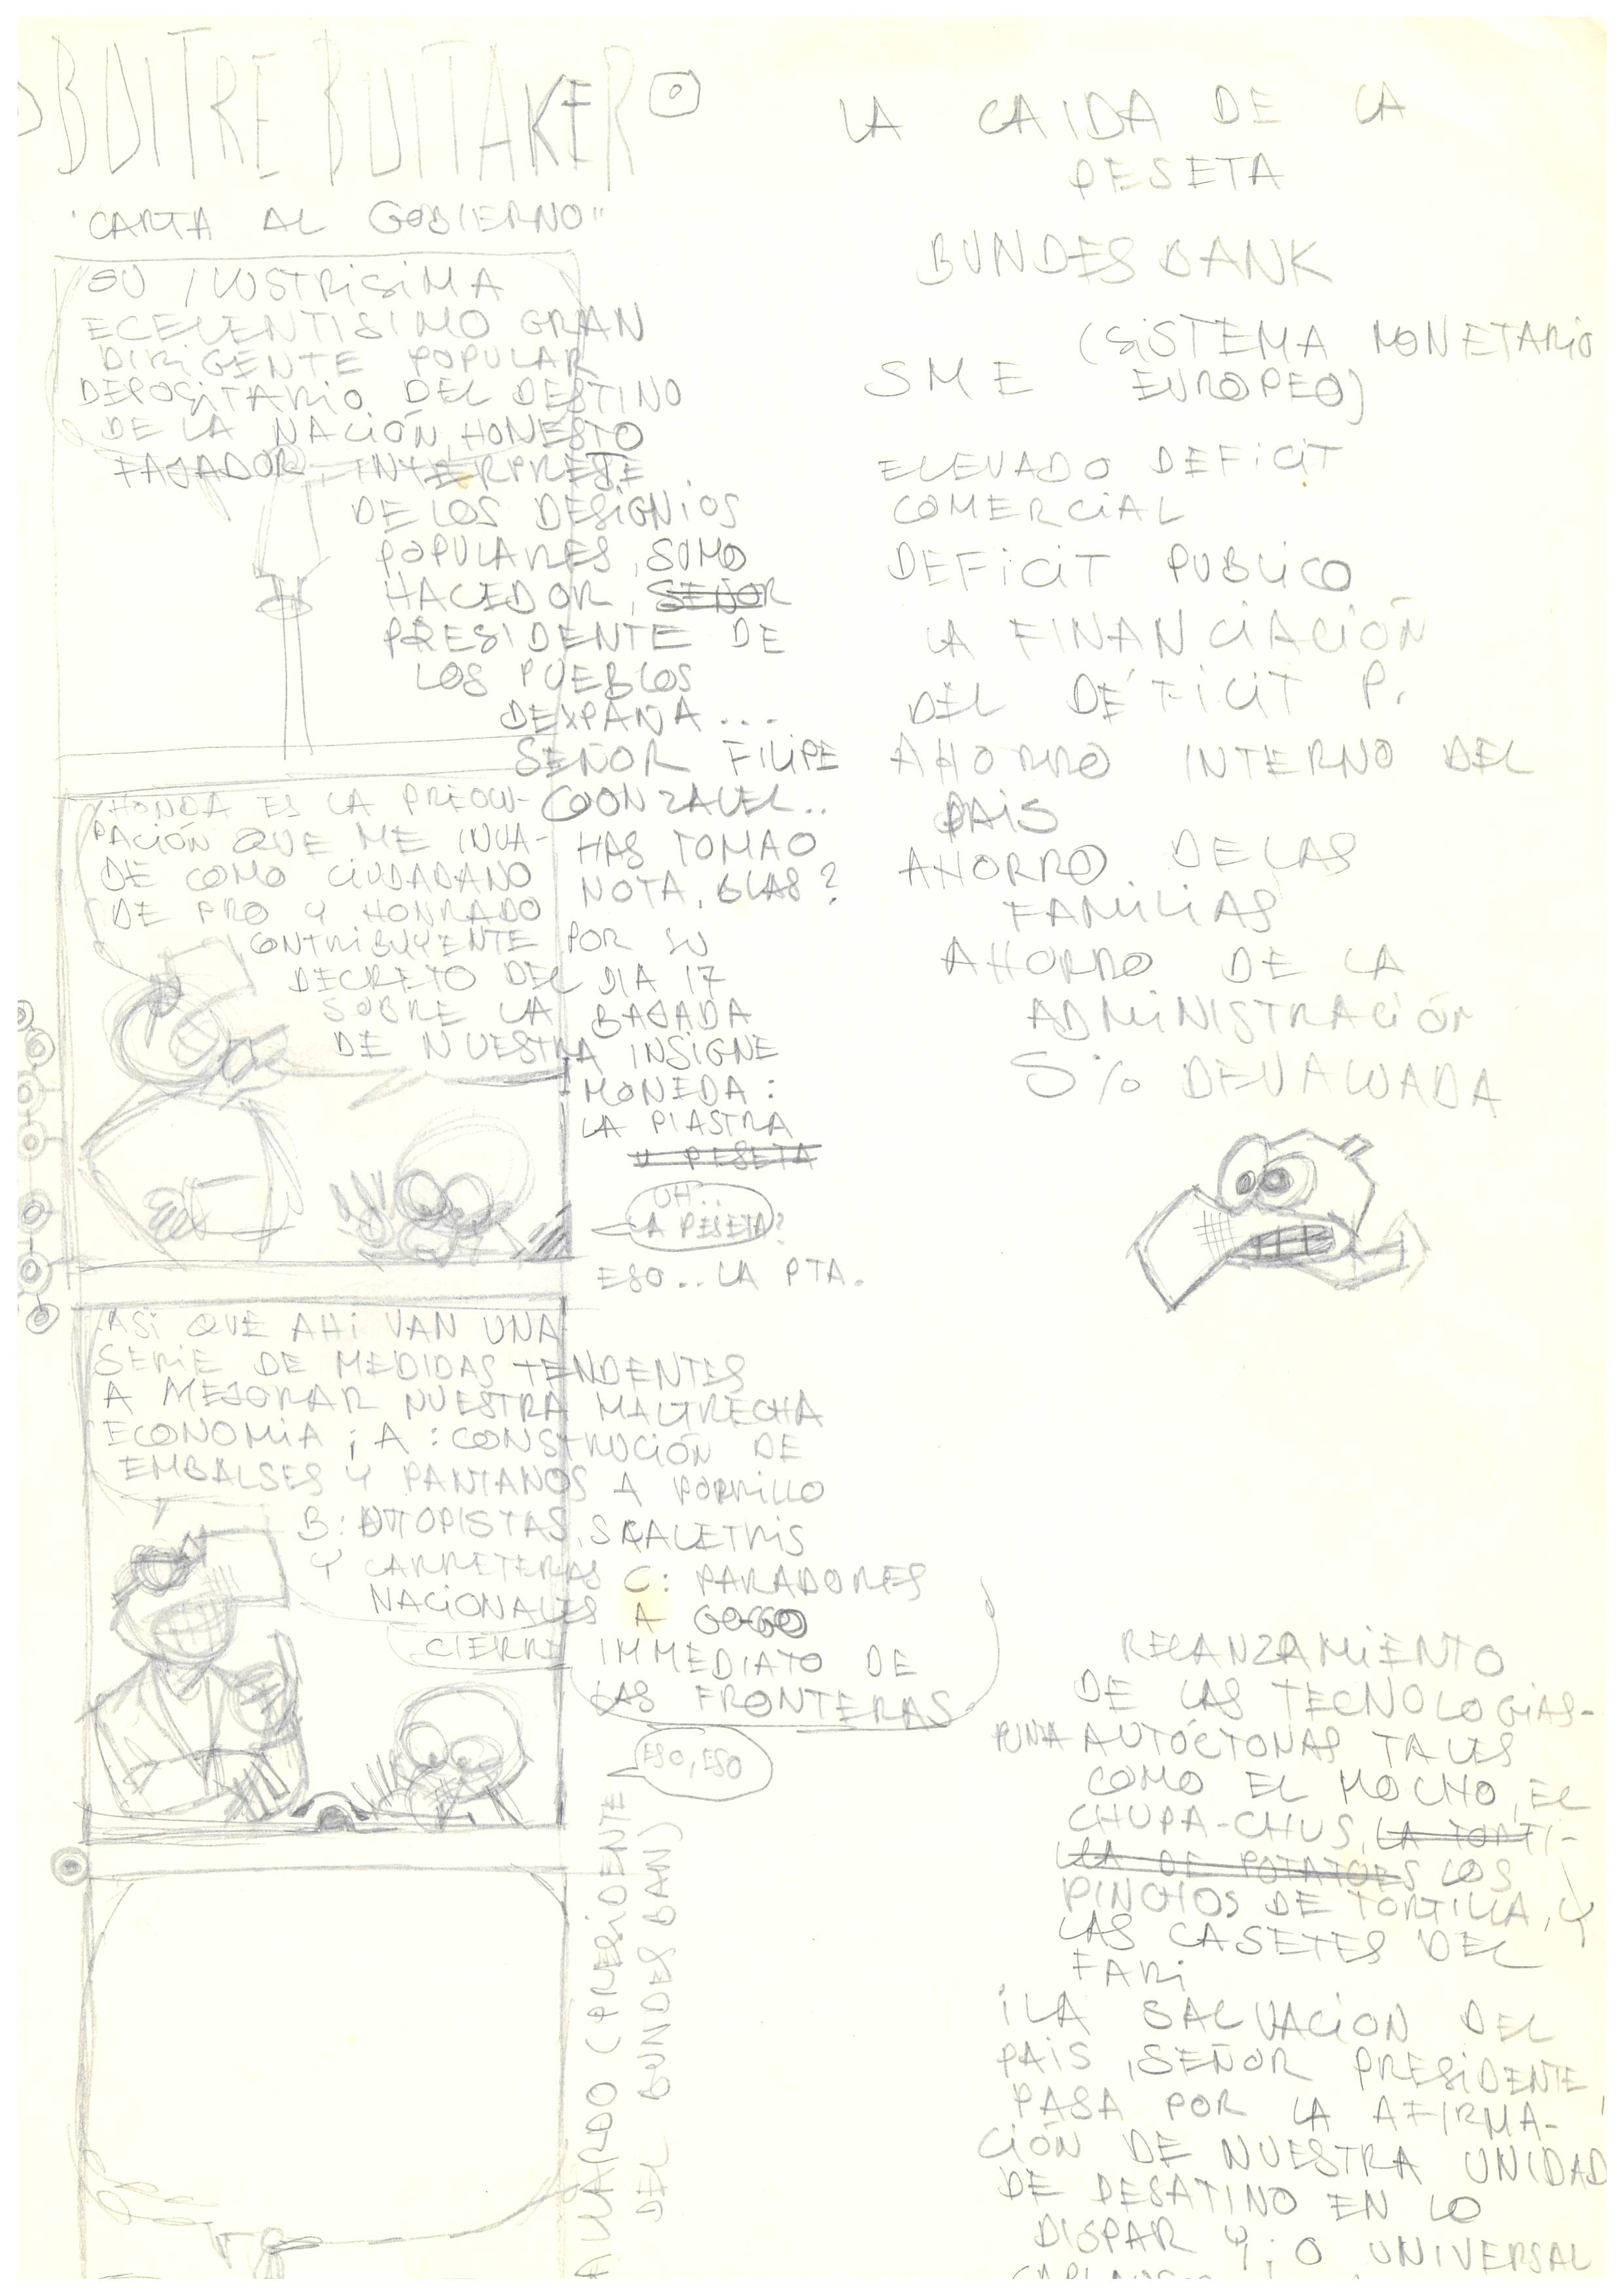 BUITRE BUITAKER
"CARTA AL GOBIERNO"
SU ILUSTRISIMA
ECELENTISIMO GRAN
DIRIGENTE POPULAR
DEPOSITARIO DEL DESTINO
DE LA NACIÓN, HONESTO
FAJADOR INTERPRETE
DE LOS DESIGNIOS
POPULARES, SUMO
HACEDOR, SEÑOR
PRESIDENTE DE
LOS PUEBLOS
DEXPAÑA...
SEÑOR FILIPE
GONZALEL..
HAS TOMAO
NOTA, BLAS?
HONDA ES LA PREOCU-
PACIÓN QUE ME INVA-
DE COMO CIUDADANO
DE PRO Y HONRADO
CONTRIBUYENTE POR SU
DECRETO DEL DIA 17
SOBRE LA BAJADA
DE NUESTRA INSIGNE
MONEDA:
LA PIASTRA
U PESETA
UH..
LA PESETA?
ESO.. LA PTA.
ASI QUE AHI VAN UNA
SERIE DE MEDIDAS TENDENTES
A MEJORAR NUESTRA MALTRECHA
ECONOMIA; A: CONSTRUCIÓN DE
EMBALSES Y PANTANOS A PORRILLO
B: AUTOPISTAS, SCALETRIS
Y CARRETERAS C: PARADORES
NACIONALES A GOGO
CIERRE IMMEDIATO DE
LAS FRONTERAS
ESO, ESO
(PRESIDENTE
DEL BUNDES BAN)
LA CAIDA DE LA
PESETA
BUNDESBANK
SME (SISTEMA MONETARIO
EUROPEO)
ELEVADO DEFICIT
COMERCIAL
DEFICIT PUBLICO
LA FINANCIACIÓN
DEL DÉFICIT P.
AHORRO INTERNO DEL
PAIS
AHORRO DE LAS
FAMILIAS
AHORRO DE LA
ADMINISTRACIÓN
5% DEVALUADA
RELANZAMIENTO
DE LAS TECNOLOGIAS-
PUNTA AUTÓCTONAS TALES
COMO EL MOCHO, EL
CHUPA-CHUS, LA TORTI-
LLA DE POTATOES LOS
PINCHOS DE TORTILLA, Y
LAS CASETES DEL
FARI
¡LA SALVACION DEL
PAIS, SEÑOR PRESIDENTE,
PASA POR LA AFIRMA-
CIÓN DE NUESTRA UNIDAD
DE DESATINO EN LO
DISPAR Y; O UNIVERSAL